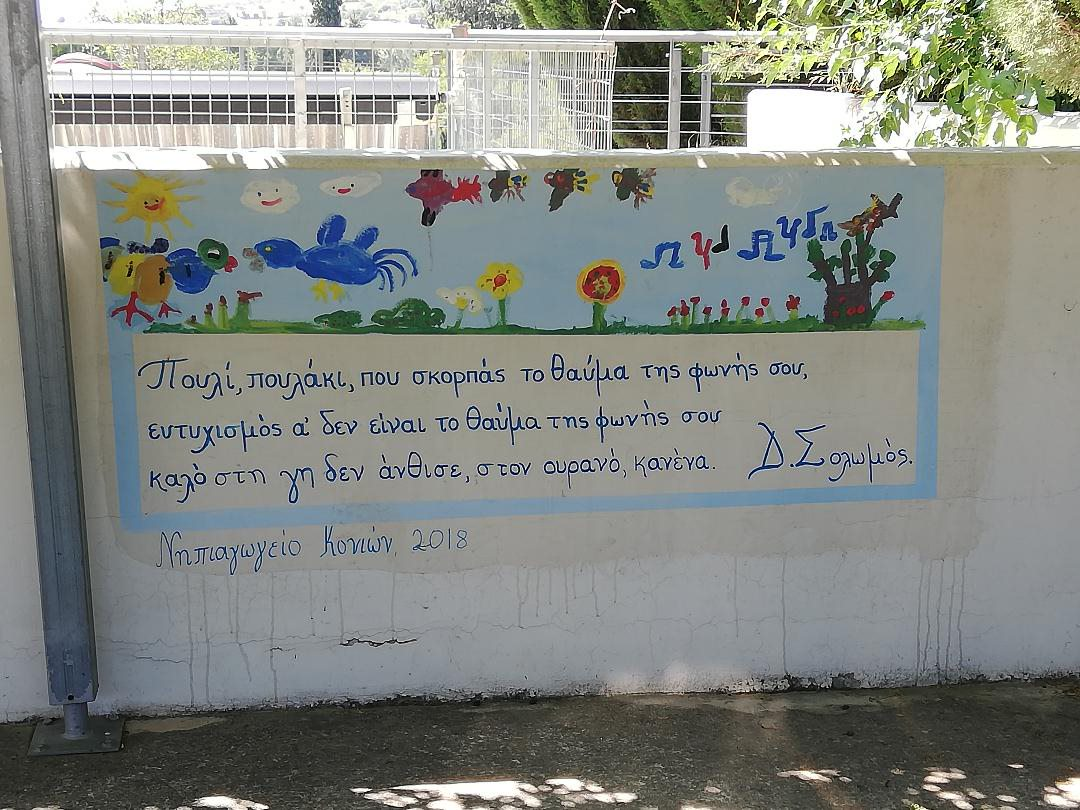 Πουλί, πουλάκι, που σκορπάς το θαύμα της φωνής σου,
ευτυχισμός α' δεν είναι το θαύμα της φωνής σου
καλό στη γη δεν άνθισε, στον ουρανό, κανένα. Δ. Σολωμός.
Νηπιαγωγείο Κονιών, 2018